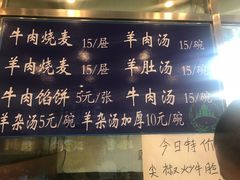 牛肉烧麦 15/屉 羊肉汤 15/碗
羊肉烧麦 15/屉 羊肚汤 15/碗
牛肉馅饼 5元/张 牛肉汤 15/碗
羊杂汤5元/碗 羊杂汤加厚10元/碗
今日特价
尖椒炒牛脸